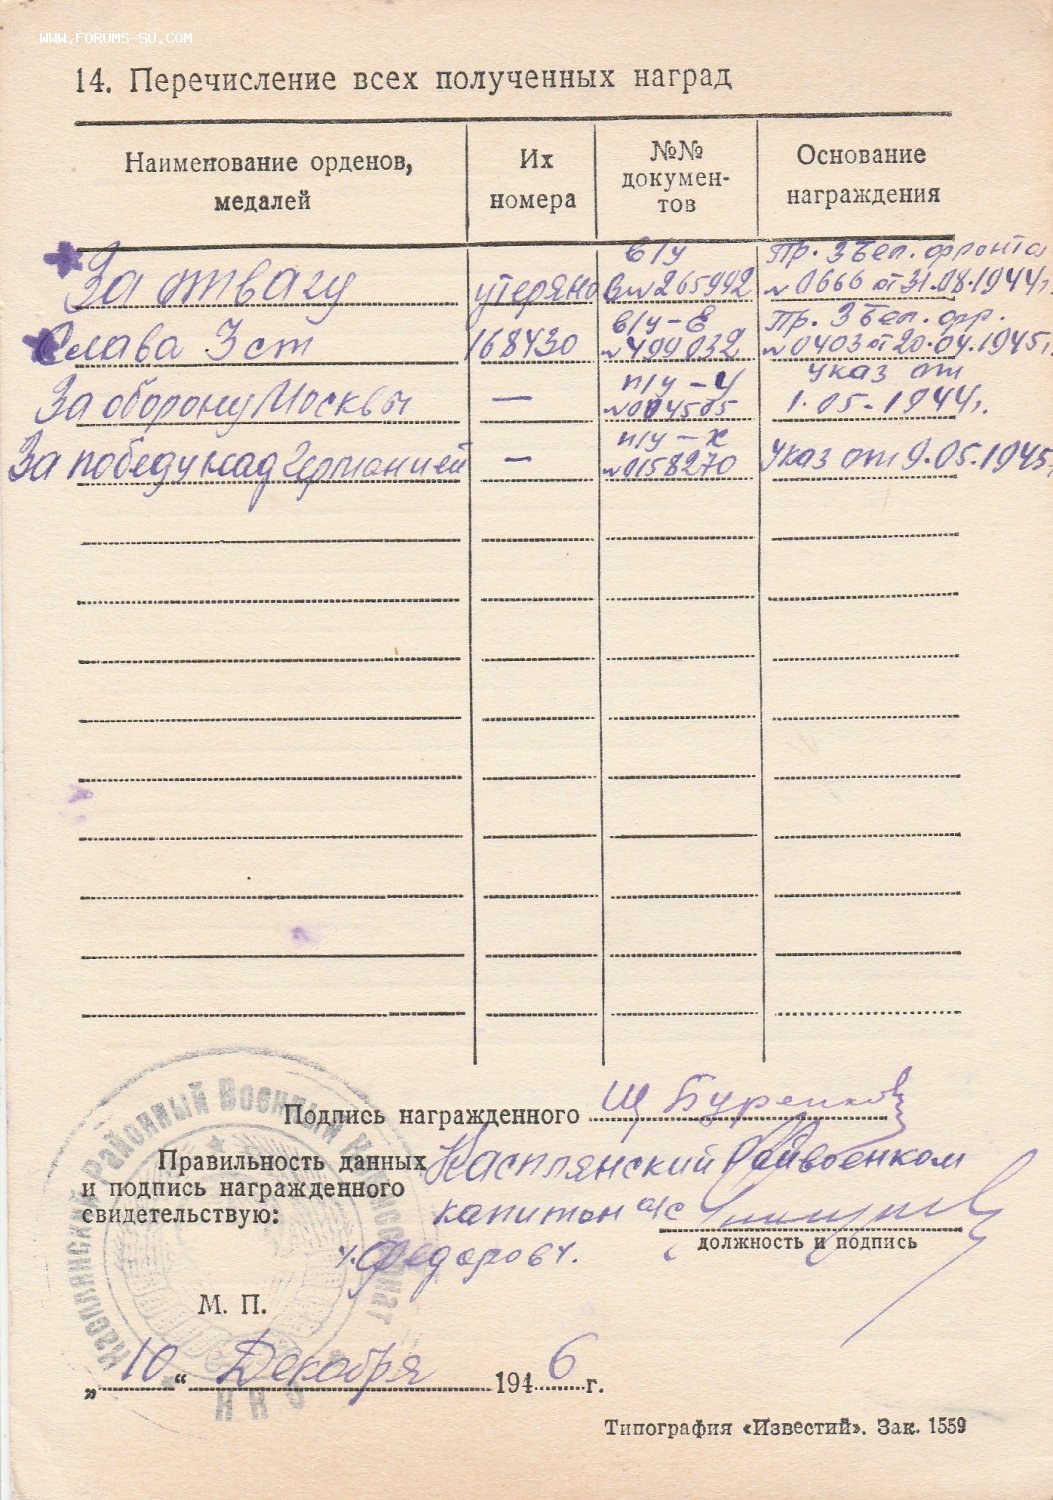 WWW.FORUMS-SU.COM
14. Перечисление всех полученных наград
Наименование орденов, медалей
Их номера
№№ докумен-тов
Основание награждения
За отвагу утеряно в/у В №265942 Пр. 3 Бел. фронта №0666 от 31.08.1944г.
Слава 3 ст 168430 в/у-Е №499032 Пр. 3 Бел. фр. №0403 от 20.04.1945г.
За оборону Москвы — п/у-Ч №004505 Указ от 1.05.1944г.
За победу над Германией — п/у-х №0158270 Указ от 9.05.1945г.
Подпись награжденного Щ Буренков
Правильность данных Касплянский Райвоенком
и подпись награжденного капитан а/с
свидетельствую:
должность и подпись
/Федоров/.
М. П.
„10“ Декабря 1946 г.
Касплянский Районный Военный Комиссариат
Типография «Известий». Зак. 1559